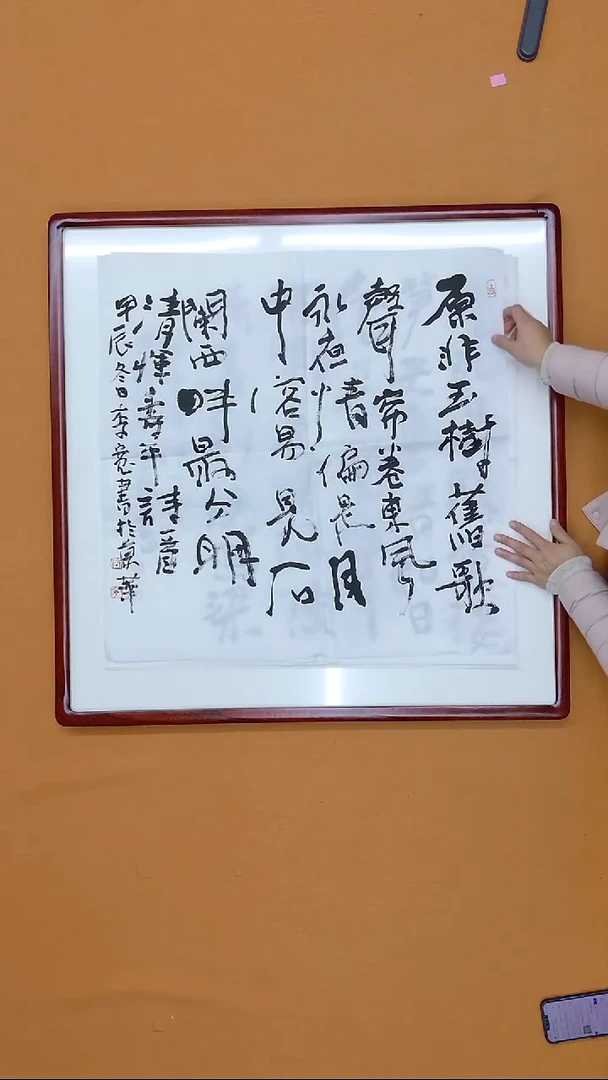 原非玉樹舊歌
聲帘卷東風
永夜情偏是月
中容易見石
闌西畔最分明
清惲壽平詩
甲辰冬日李寬書於京華